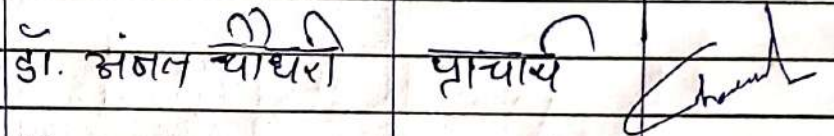 डॉ. अंजल चौधरी प्राचार्य